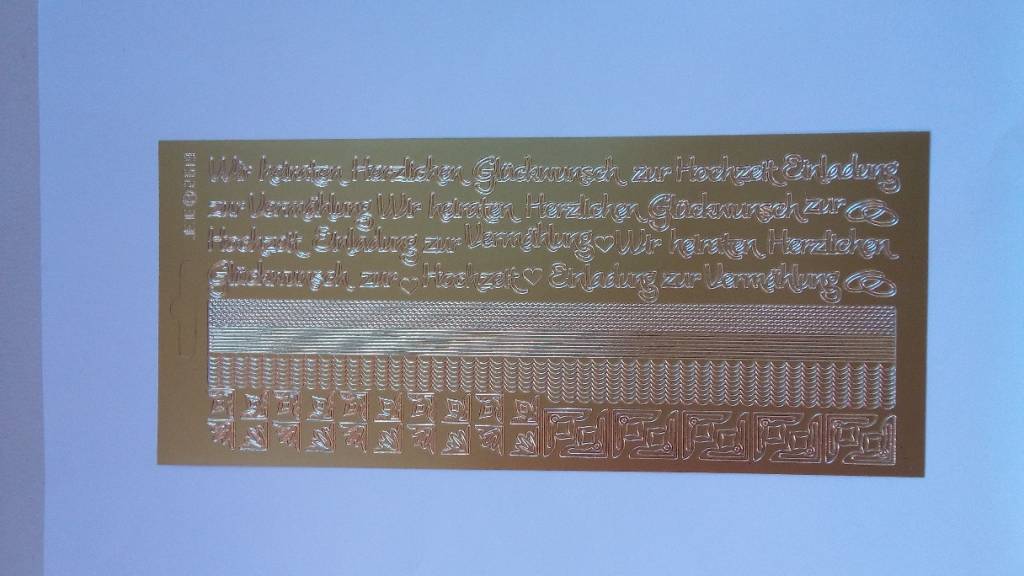 Wir heiraten Herzlichen Glückwunsch zur Hochzeit Einladung
zur Vermählung Wir heiraten Herzlichen Glückwunsch zur
Hochzeit Einladung zur Vermählung Wir heiraten Herzlichen
Glückwunsch zur Hochzeit Einladung zur Vermählung